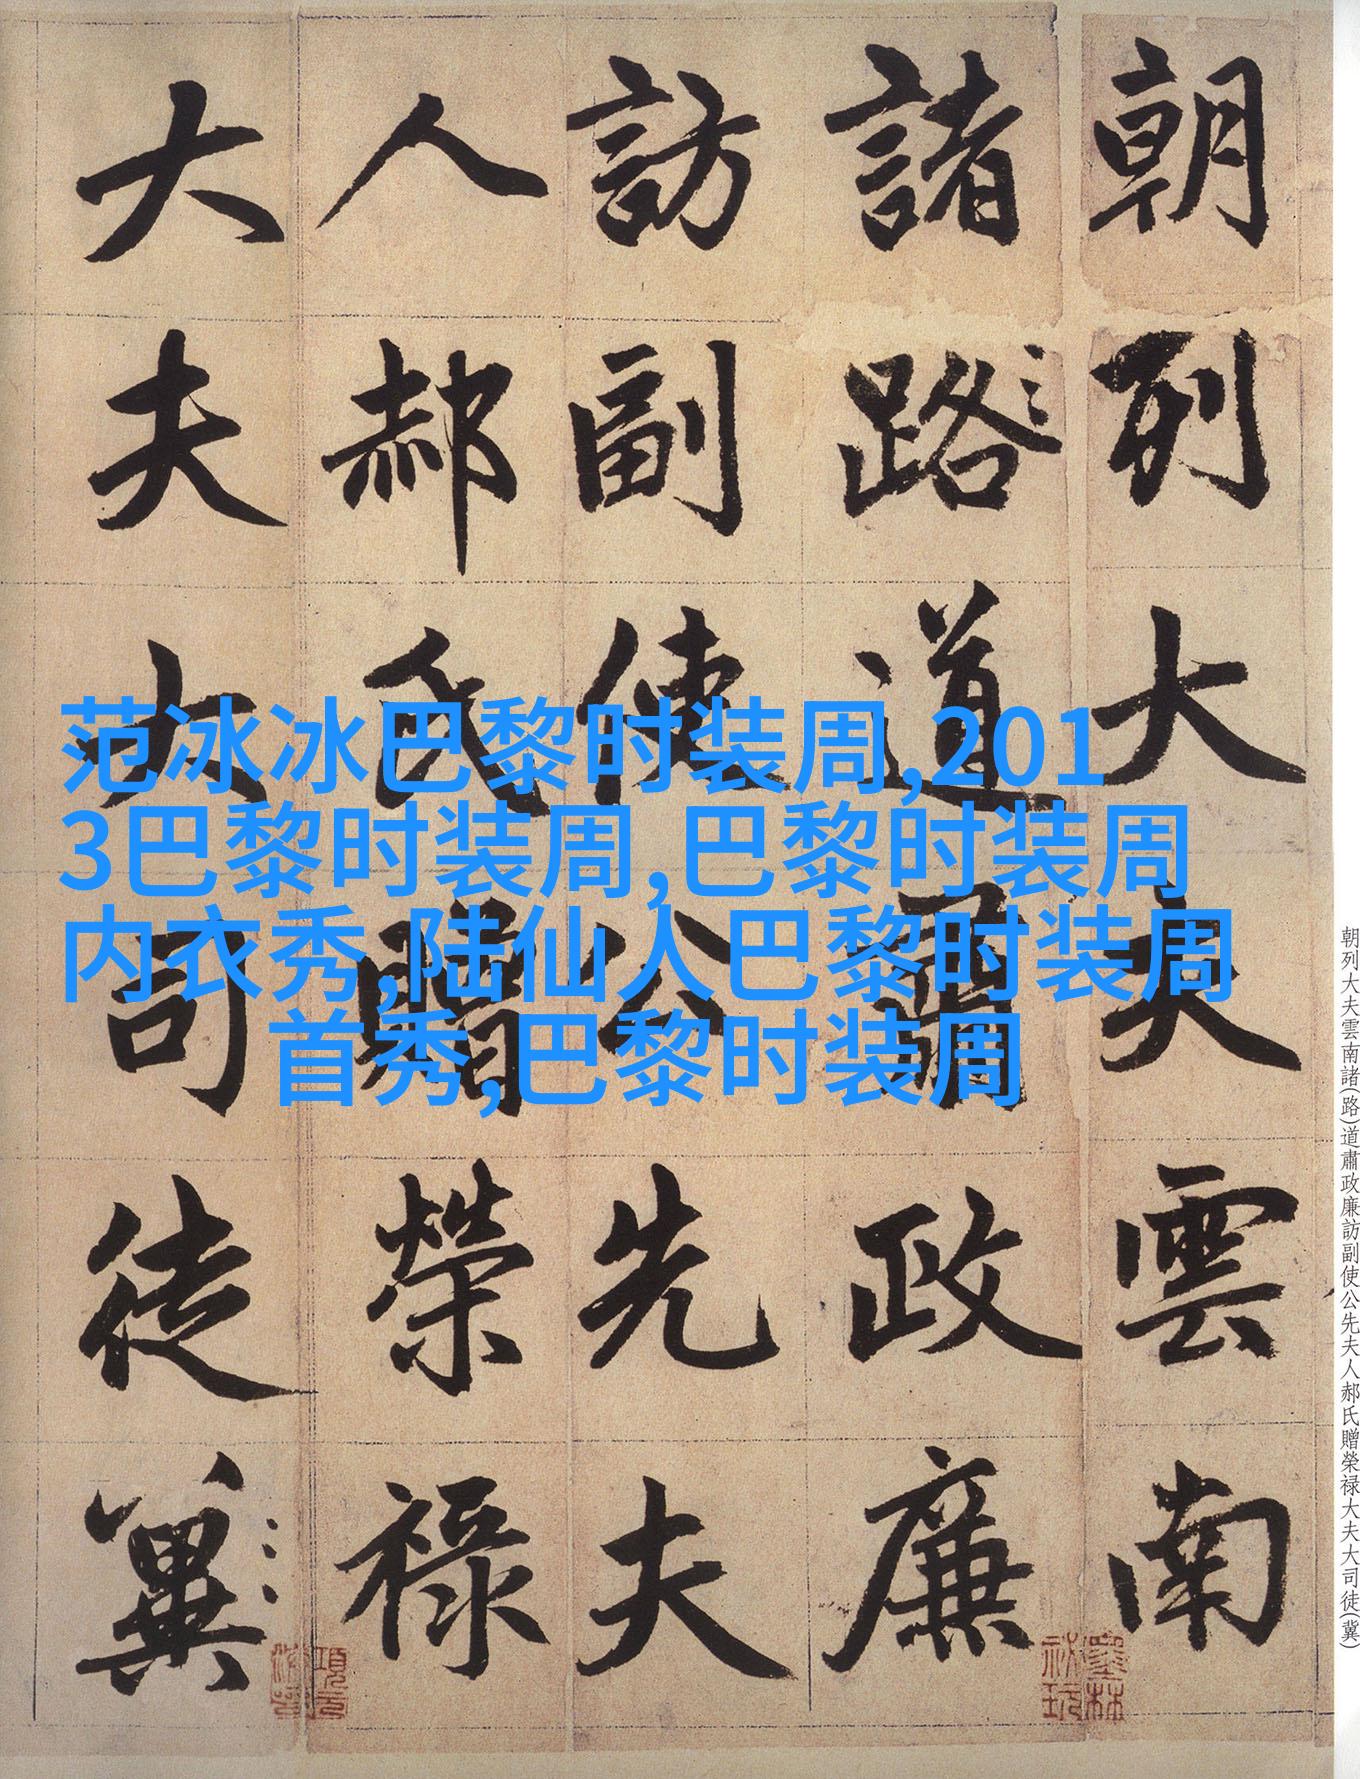 朝列大夫雲南
諸路道肅政廉
訪副使公先夫
人郝氏贈榮禄
大夫大司徒冀
范冰冰巴黎时装周,201
3巴黎时装周,巴黎时装周
内衣秀,陆仙人巴黎时装周
首秀,巴黎时装周
朝列大夫雲南諸(路)道肅政廉訪副使公先夫人郝氏贈榮禄大夫大司徒(冀)
墨林
祕玩
項元
汴印